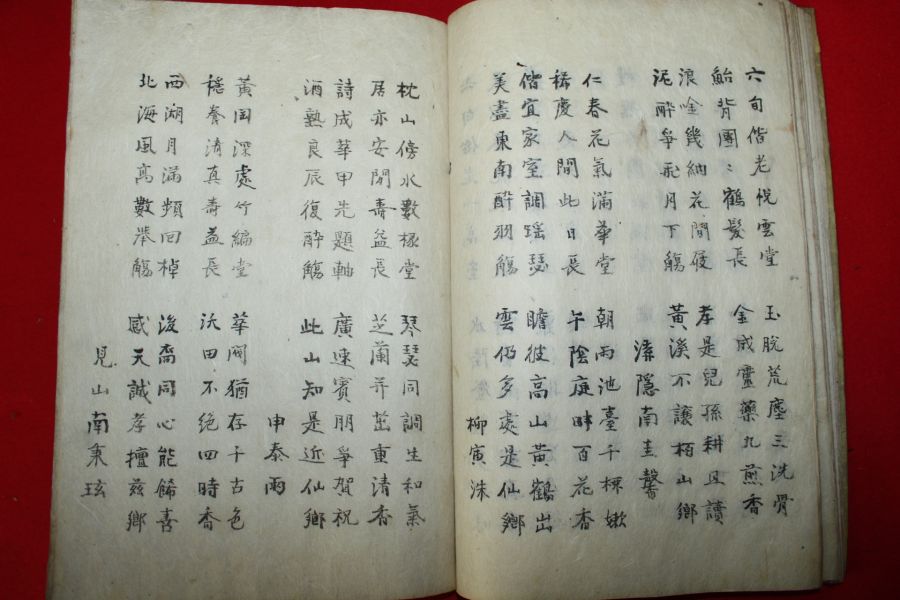 六旬偕老悅雲堂 玉脘荒塵三洗骨
鮐背團〻鶴髮長 金成靈藥九煎香
浪唫幾納花間屐 孝是兒孫耕且讀
泥醉爭飛月下觴 黃溪不讓栢山鄉
溱隱南圭馨
仁春花氣滿華堂 朝雨池臺千樑嫰
稀慶人間此日長 午陰庭畔百花香
偕宜家室調瑤瑟 瞻彼高山黃鶴出
美盡東南酔羽觴 雲仍多處是仙鄉
柳寅洙
枕山傍水數椽堂 琴瑟同調生和氣
居亦安閒壽益長 芝蘭幷茁重清香
詩成華甲先題軸 廣速賓朋爭賀祝
酒熟良辰復酔觴 此山知是近仙鄉
申泰雨
黃囯深處竹編堂 華閥猶存千古色
穩養清真壽益長 沃田不絕四時香
西湖月滿頻囘棹 後裔同心能餙喜
北海風高數擧觴 感天誠孝擅玆鄉
見山南秉玹